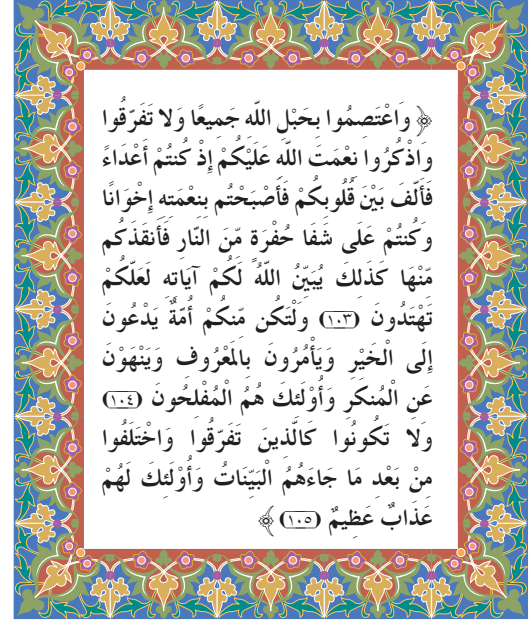 ﴿ وَاعْتَصِمُوا بِحَبْلِ اللّهِ جَمِيعًا وَلا تَفَرَّقُوا
وَاذْكُرُوا نِعْمَتَ اللّهِ عَلَيْكُمْ إِذْ كُنتُمْ أَعْدَاءً
فَأَلَّفَ بَيْنَ قُلُوبِكُمْ فَأَصْبَحْتُم بِنِعْمَتِهِ إِخْوَانًا
وَكُنتُمْ عَلَى شَفَا حُفْرَةٍ مِّنَ النَّارِ فَأَنقَذَكُم
مِّنْهَا كَذَلِكَ يُبَيِّنُ اللّهُ لَكُمْ آيَاتِهِ لَعَلَّكُمْ
تَهْتَدُونَ (١٠٣) وَلْتَكُن مِّنكُمْ أُمَّةٌ يَدْعُونَ
إِلَى الْخَيْرِ وَيَأْمُرُونَ بِالْمَعْرُوفِ وَيَنْهَوْنَ
عَنِ الْمُنكَرِ وَأُوْلَئِكَ هُمُ الْمُفْلِحُونَ (١٠٤)
وَلاَ تَكُونُوا كَالَّذِينَ تَفَرَّقُوا وَاخْتَلَفُوا
مِنْ بَعْدِ مَا جَاءَهُمُ الْبَيِّنَاتُ وَأُوْلَئِكَ لَهُمْ
عَذَابٌ عَظِيمٌ (١٠٥) ﴾